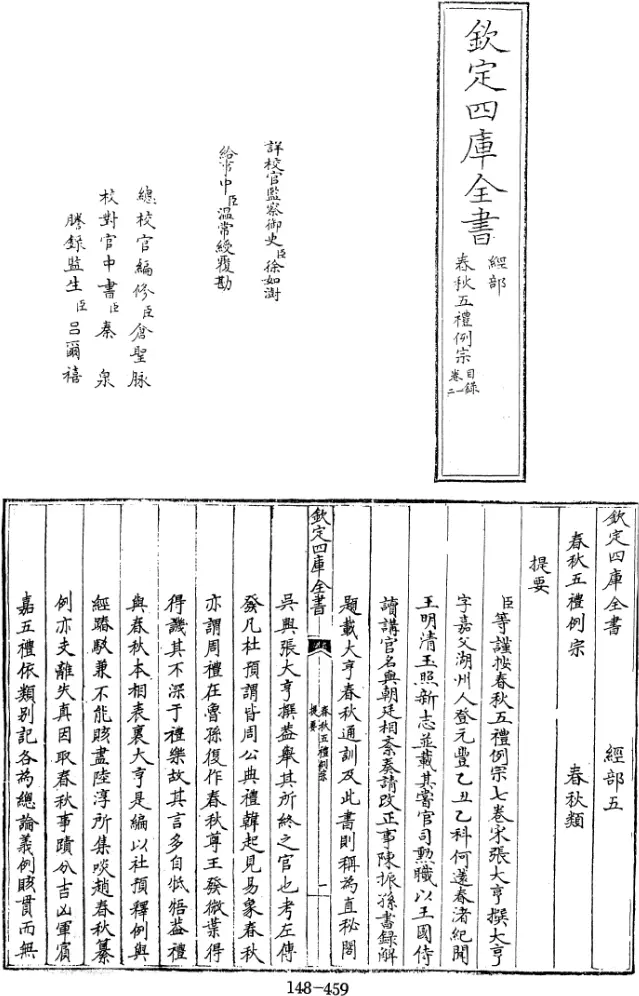 欽定四庫全書
經部
春秋五禮例宗 目錄 卷一二
詳校官監察御史臣徐如澍
給事中臣溫常綬覆勘
總校官編修臣倉聖脉
校對官中書臣秦泉
謄錄監生臣呂爾禧
欽定四庫全書 經部五
春秋五禮例宗 春秋類
提要
臣等謹按春秋五禮例宗七卷宋張大亨撰大亨
字嘉父湖州人登元豐乙丑乙科何薳春渚紀聞
王明清玉照新志並載其嘗官司勲職以王國侍
讀講官名與朝廷相紊奏請改正事陳振孫書録解
題載大亨春秋通訓及此書則稱為直秘閣
欽定四庫全書 春秋五禮例宗 提要 一
吳興張大亨撰葢舉其所終之官也考左傳
發凡杜預謂皆周公典禮韓起見易象春秋
亦謂周禮在魯孫復作春秋尊王發微葉得
得譏其不深于禮樂故其言多自牴牾葢禮
與春秋本相表裏大亨是編以杜預釋例與
經踳駁兼不能賅盡陸淳所集啖趙春秋纂
例亦支離失真因取春秋事蹟分吉凶軍賓
嘉五禮依類別記各為總論義例賅貫而無
148-459